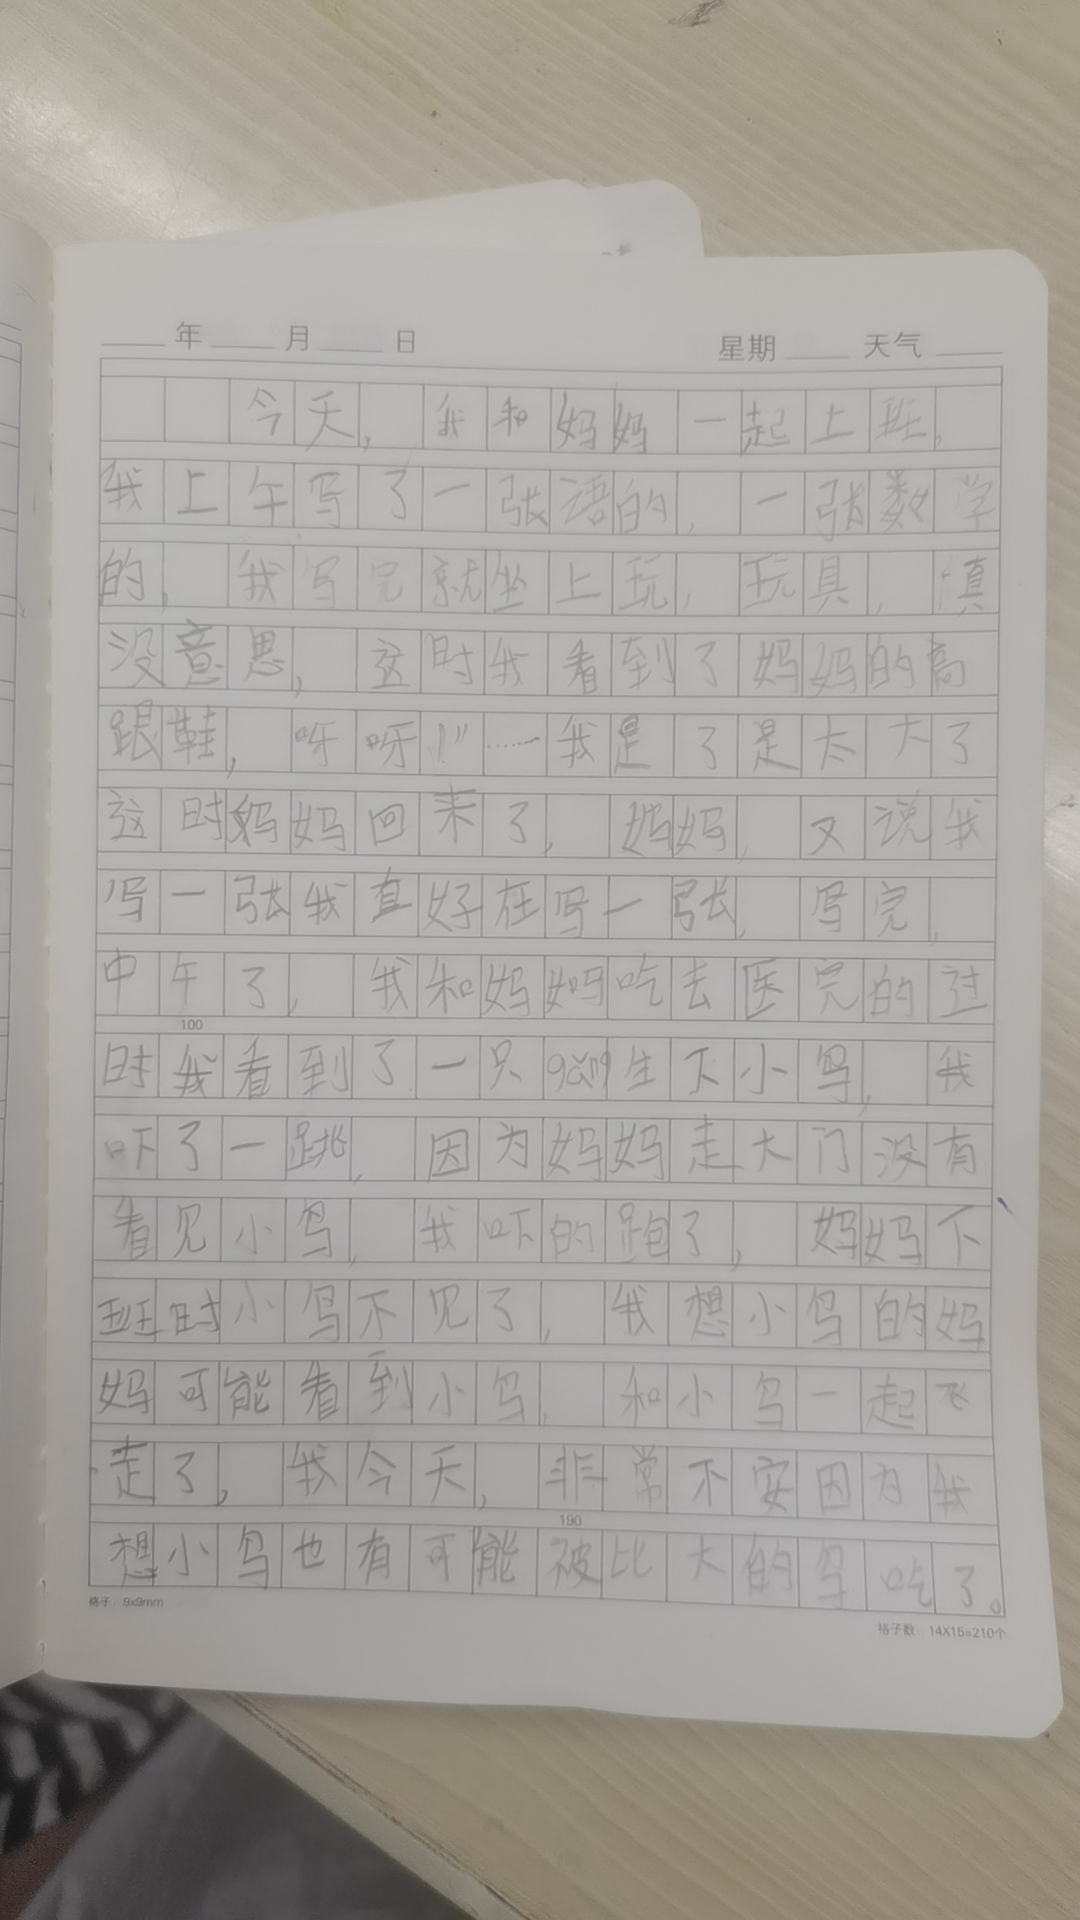 年 月 日 星期 天气
今天，我和妈妈一起上班，
我上午写了一张语的，一张数学
的，我写完就坐上玩，玩具，真
没意思，这时我看到了妈妈的高
跟鞋，呀呀！！……我是了是太大了
这时妈妈回来了，妈妈，又说我
写一张我直好在写一张，写完，
中午了，我和妈妈吃去医完的过
时我看到了一只gāng生下小鸟，我
吓了一跳，因为妈妈走大门没有
看见小鸟，我吓的跑了，妈妈下
班时小鸟不见了，我想小鸟的妈
100
妈可能看到小鸟，和小鸟一起飞
走了，我今天，非常不安因为我
190
想小鸟也有可能被比大的鸟吃了。
格子：9x9mm
格子数：14X15=210个